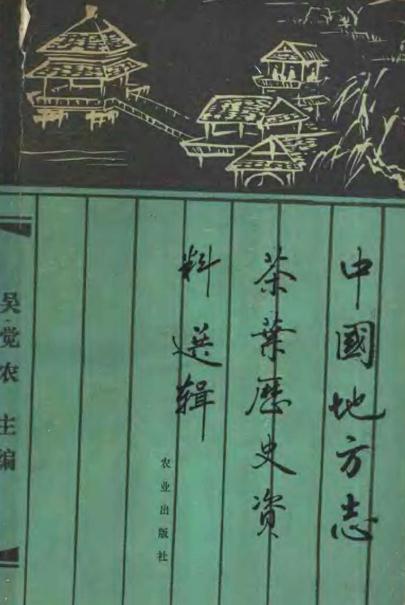 中國地方志
茶葉歷史資
料選辑
农业出版社
吴觉农主编